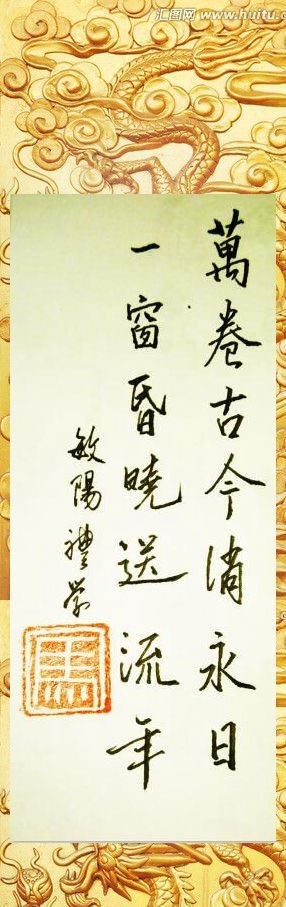 汇图网 www.huitu.c
萬卷古今消永日
一窗昏曉送流年
敏陽禮学
馬